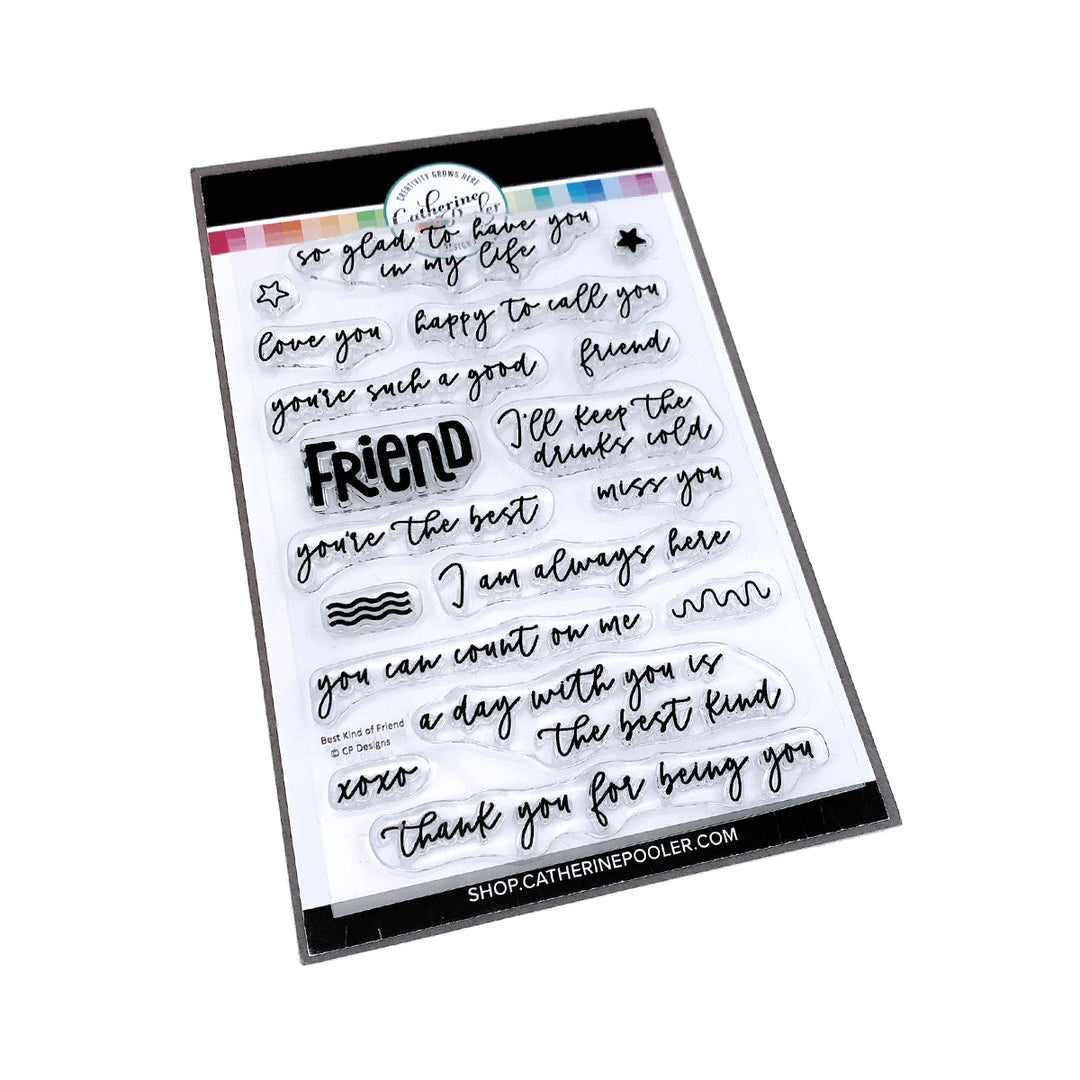 CREATIVITY GROWS HERE
Catherine
Pooler
so glad to have you
in my life
love you
happy to call you
you're such a good
friend
FRIEND
I'll keep the
drinks cold
miss you
you're the best
I am always here
you can count on me
a day with you is
the best kind
Best Kind of Friend
© CP Designs
xoxo
thank you for being you
SHOP.CATHERINEPOOLER.COM